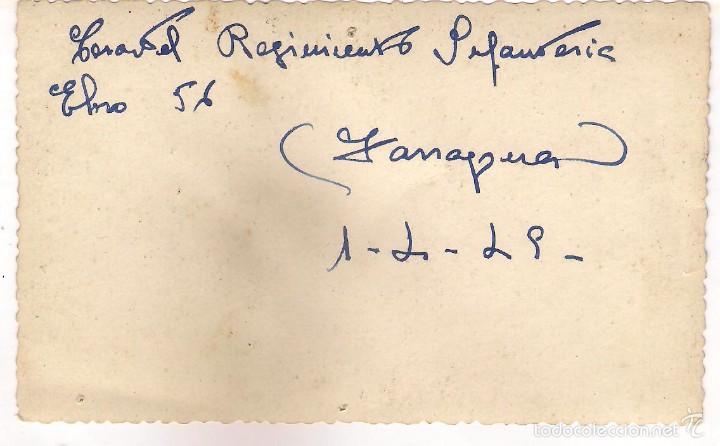 Cuartel Regimiento Infanteria
Ebro 56
(Tarragona)
todocoleccion.net